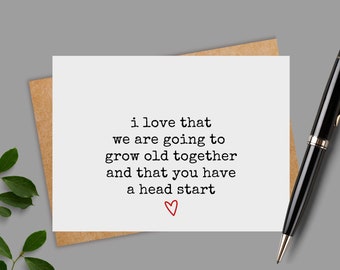 i love that
we are going to
grow old together
and that you have
a head start